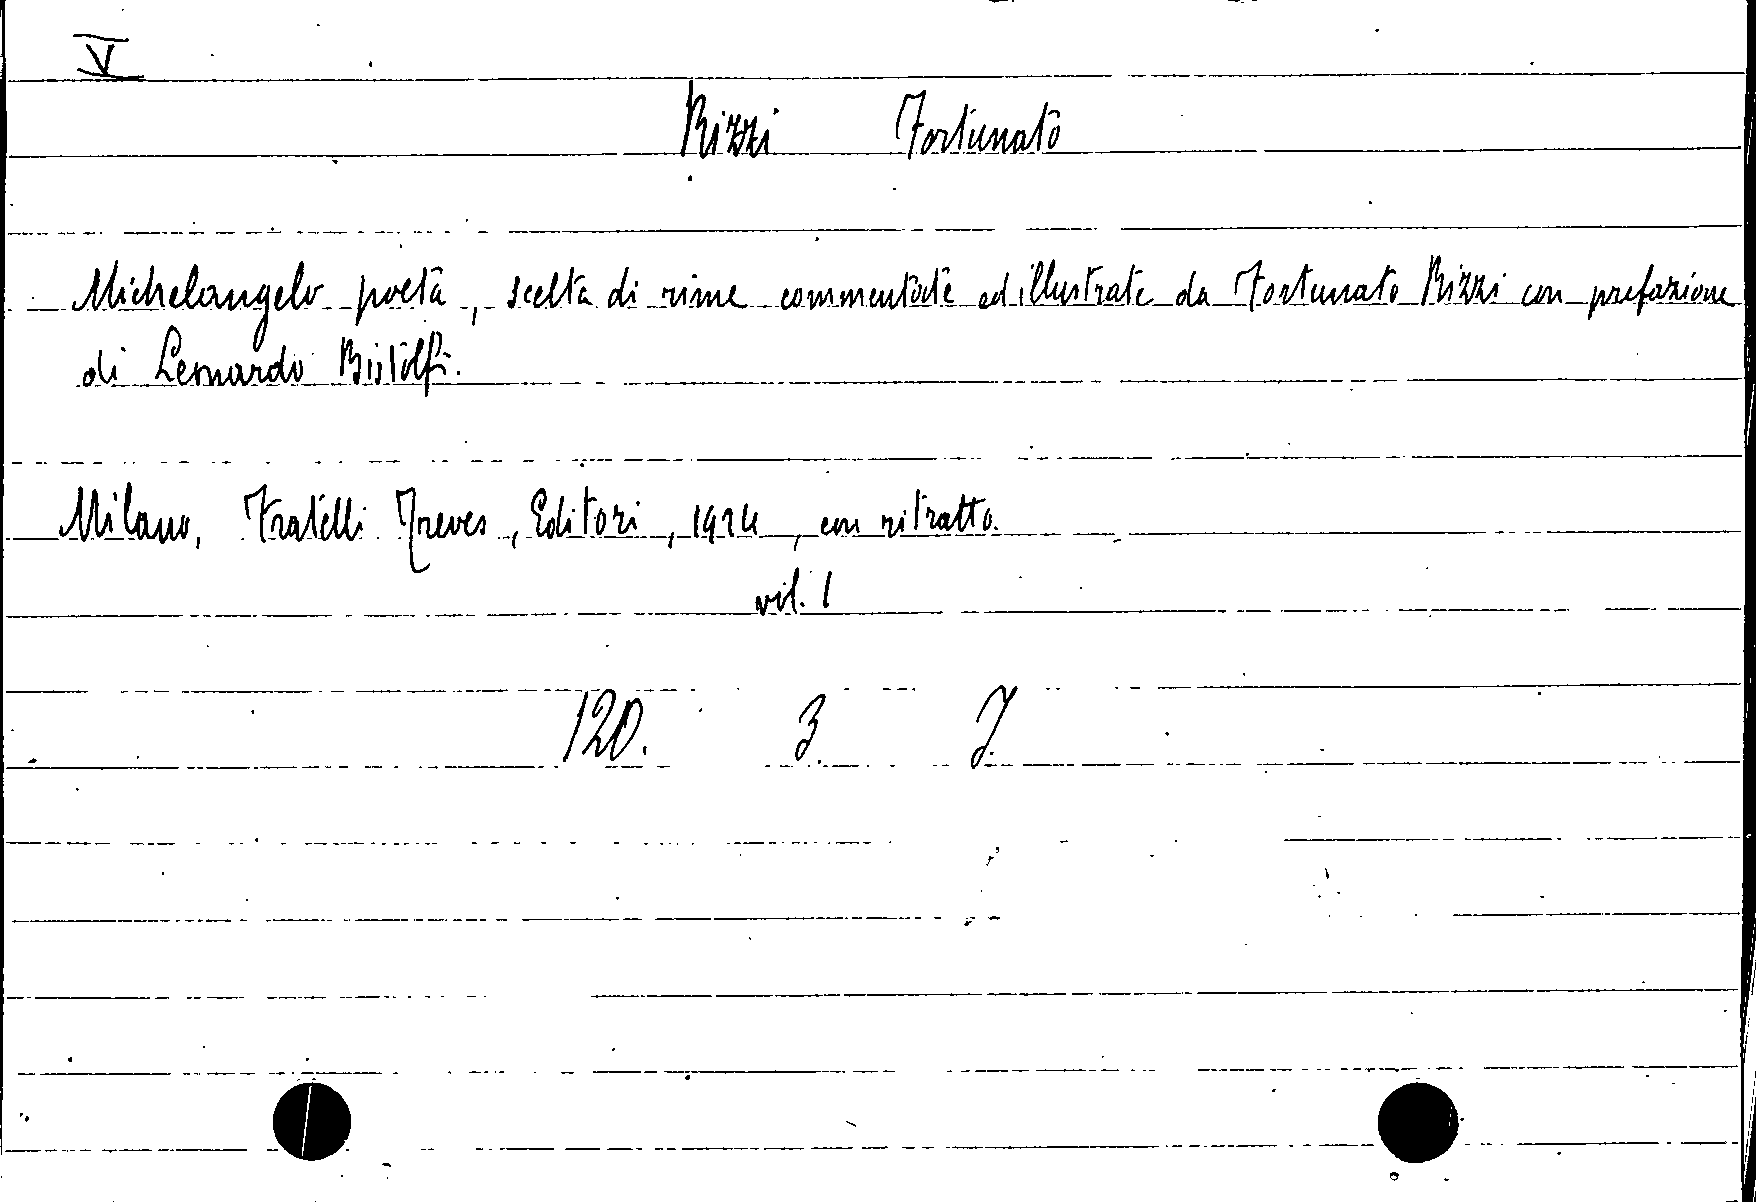 V
Rizzi Fortunato
Michelangelo poeta, scelta di rime commentate ed illustrate da Fortunato Rizzi con prefazione
di Leonardo Bistolfi.
Milano, Fratelli Treves, Editori, 1924, con ritratto.
vol. 1
120. 3. J.